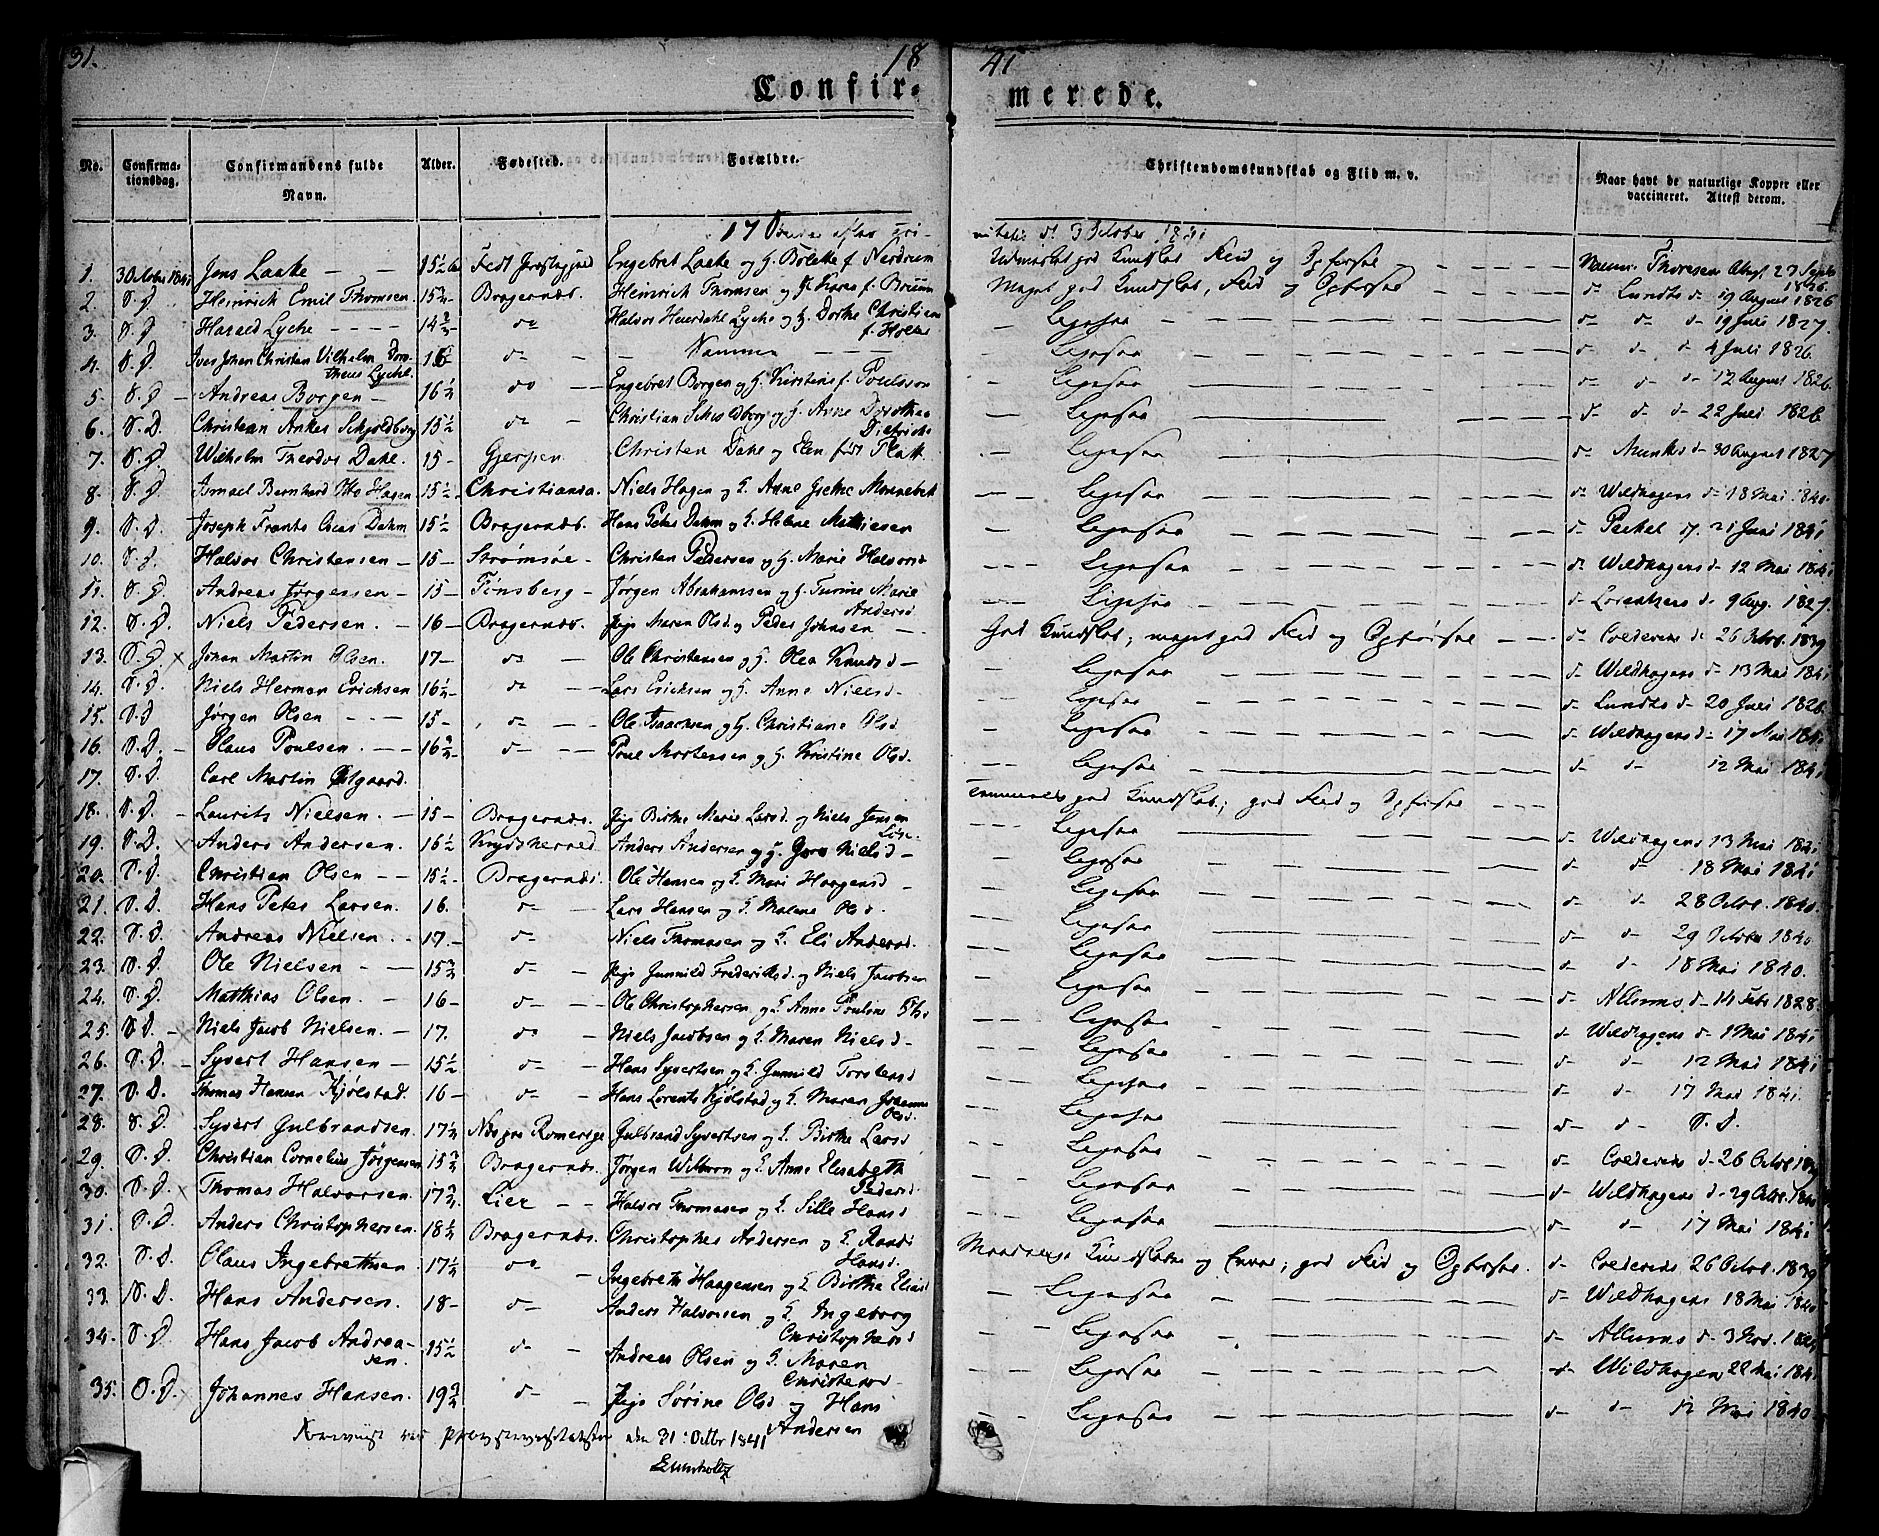 31. 18 41
Confir- merede.
No. Confirma-tionsdag. Confirmandens fulde Navn. Alder. Fødested. Forældre. Christendomskundskab og Flid m. v. Naar havt de naturlige Kopper eller vaccineret. Attest derom.
17 3 October 1841
1. 3 Octobr 1841 Jens Laake 15½ Engebret Laake og H. Bolette f. Nerdrum Udmærket god Kundskab Flid og Opførsel Thoresen Attest 27 Septbr 1826
2. S. D. Heinrich Emil Thomsen 15 Bragernæs. Heinrich Thomsen og H. Karen f. Bruun Meget god Kundskab, Flid og Opførsel do Lundts do 19 August 1826
3. S. D. Harald Lyche 14 do Halvor Heierdahl Lyche og H. Dorthe Christiane f. Holter Ligesaa do do do 19 Juli 1827.
4. S. D. Iver Johan Christian Vilhelm Dorotheus Lyche 16 do Samme Ligesaa do do do 4 Juli 1826.
5. S. D. Andreas Borgen 16½ do Engebret Borgen og H. Kirstine f. Poulsson Ligesaa do do do 12 August 1826.
6. S. D. Christian Anker Schjoldborg 15½ do Christian Schioldborg og H. Anne Dorothea Dietrichs Ligesaa do do do 22 Juli 1826.
7. S. D. Wilhelm Theodor Dahl. 15 Gjerpen Christen Dahl og Elen født Flatt Ligesaa do Munks do 30 August 1827
8. S. D. Ismael Bernhard Otto Hagen 15½ Christiania. Niels Hagen og H. Anne Grethe Ligesaa do Wildhagens do 18 Mai 1840.
9. S. D. Joseph Frants Oscar Dahm 15½ Bragernæs. Hans Peter Dahm og H. Helene Mathiesen Ligesaa do 21 Juni 1841
10. S. D. Halvor Christensen 15 Strømsøe Christen Pedersen og H. Marie Halvorsd Ligesaa do Wildhagens do 12 Mai 1841
11. S. D. Andreas Jørgensen 15 Tønsberg Jørgen Abrahamsen og H. Turine Marie Andersd Ligesaa do Lorentzens do 9 Aug. 1827.
12. S. D. Niels Pedersen. 16 Bragernæs. Pige Maren Olsd. og Peder Johnsen God Kundskab; meget god Flid og Opførsel do 26 Octbr. 1839
13. S. D. Johan Martin Olsen. 17 do Ole Christensen og H. Olea Knudsd Ligesaa do Wildhagens do 13 Mai 1841
14. S. D. Niels Herman Ericksen 16½ do Lars Ericksen og H. Anne Nielsd Ligesaa do Lundts do 20 Juli 1826.
15. S. D. Jørgen Olsen 15 do Ole Isaachsen og H. Christiane Olsd Ligesaa do Wildhagens do 17 Mai 1841
16. S. D. Claus Poulsen. 16 do Poul Mortensen og H. Kirstine Olsd. Ligesaa do do 12 Mai 1841
17. S. D. Carl Martin Østgaard. Temmelig god Kundskab; god Flid og Opførsel
18. S. D. Laurits Nielsen. 15 Bragernæs. Pige Birthe Marie Larsd. og Niels Jensen Ligesaa do Wildhagens 13 Mai 1841
19. S. D. Anders Andersen. 16½ Anders Andersen og H. Nielsd Ligesaa do do 18 Mai 1841
20. S. D. Christian Olsen 15½ Bragernæs. Ole Hansen og H. Mari Haagensd Ligesaa do do 28 Octbr. 1840.
21. S. D. Hans Peter Larsen. 16. do Lars Hansen og H. Malene Olsd. Ligesaa do do 29 October 1840
22. S. D. Andreas Nielsen 17. do Niels Thomasen og H. Eli Andersd. Ligesaa do do 18 Mai 1840.
23. S. D. Ole Nielsen 15 do Pige Gunnild Frederiksd. og Niels Jacobsen Ligesaa do Allums do 14 Febr 1828
24. S. D. Matthias Olsen. 16 do Ole Christophersen og H. Anne Pouline Ligesaa do Wildhagens do 1 Mai 1841
25. S. D. Niels Jacob Nielsen. 17. do Niels Jacobsen og H. Maren Nielsd Ligesaa do do 12 Mai 1841
26. S. D. Syvert Hansen 15½ do Hans Syvertsen og H. Gunnild Torstensd Ligesaa do do 17 Mai 1841.
27. S. D. Thomas Hansen Kjølstad. 16 do Hans Lorents Kjølstad og H. Maren Johanne Olsd. Ligesaa do do S. D.
28. S. D. Syvert Gulbrandsen. 17½ Næs paa Romerige Gulbrand Syvertsen og H. Birthe Larsd Ligesaa do 26 Octbr 1839
29. S. D. Christian Cornelius Jørgensen 15 Bragernæs. Jørgen og H. Anne Elisabeth Pedersd. Ligesaa do Wildhagens do 29 Octbr. 1840
30. S. D. Thomas Halvorsen 17 Lier Halvor Thomasen og H. Sille Hansd Ligesaa do do 17 Mai 1841
31. S. D. Anders Christophersen 18½ Bragernæs. Christopher Andersen og H. Randi Hansd. Maadelig Kundskab god Flid og Opførsel. do 26 Octbr. 1839
32. S. D. Olaus Ingebrethsen 17½ do Ingebreth Haagensen og H. Birthe Eliasd Ligesaa do Wildhagens 18 Mai 1840
33. S. D. Hans Andersen. 18 do Anders Halvorsen og H. Ingeborg Christophersd Ligesaa do Allums do 3 Nov.
34. S. D. Hans Jacob Andreasen. 15½ do Andreas Olsen og H. Maren Christensd Ligesaa do Wildhagen 22 Mai 1841
35. S. D. Johannes Hansen. 19 do Pige Sørine Olsd og Hans Andersen Ligesaa do do 12 Mai 1840
den 31 Octbr 1841